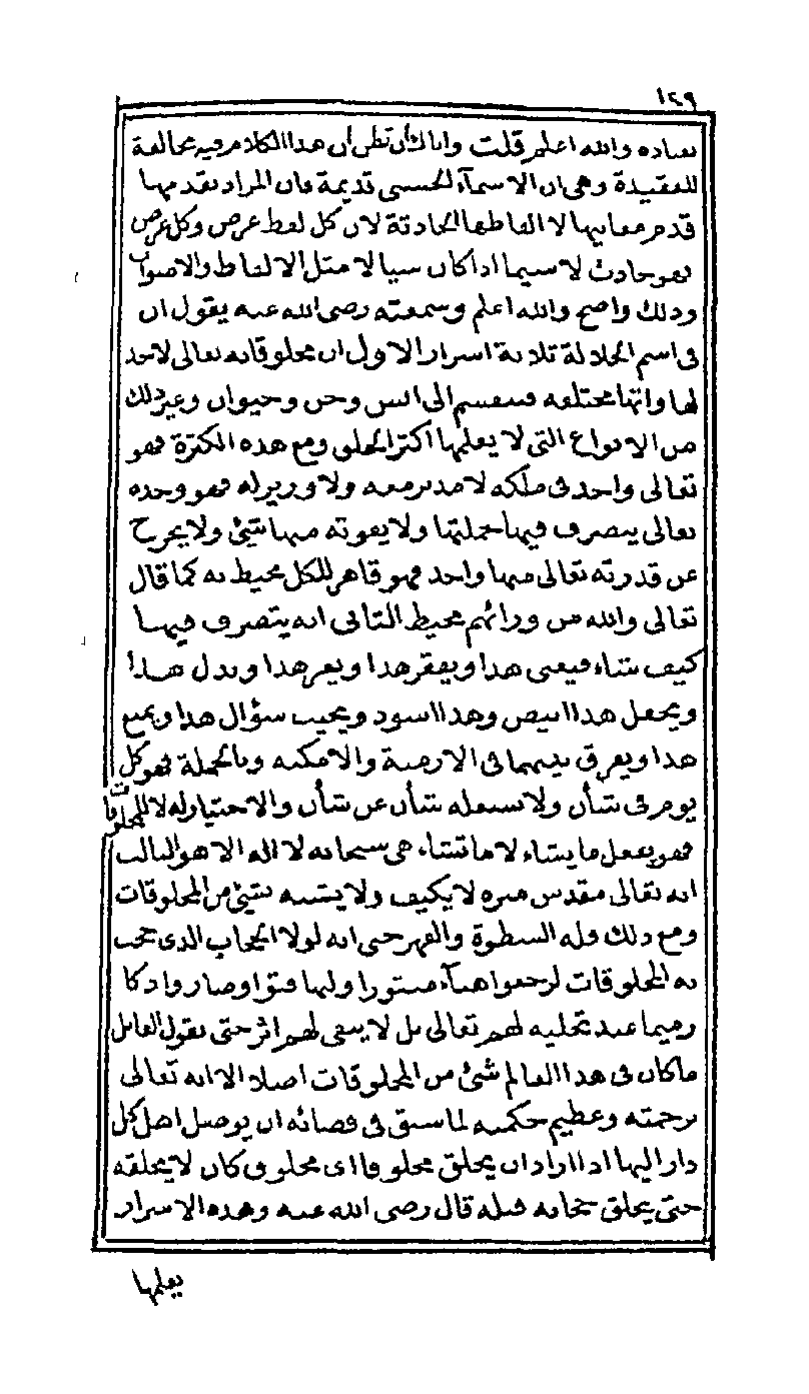 ١٢٩
بعباده والله اعلم قلت واياك ان تظن ان هذا الكلام فيه مخالفة
للعقيدة وهي ان الاسمآء الحسنى قديمة فان المراد بقدمها
قدم معانيها لا الفاظها الحادثة لان كل لفظ عرض وكل عرض
فهو حادث لا سيما اذا كان سيالا مثل الالفاظ والاصوات
وذلك واضح والله اعلم وسمعته رضى الله عنه يقول ان
فى اسم الجلالة ثلاثة اسرار الاول ان مخلوقاته تعالى لا حد
لها وانها مختلفه فتنقسم الى انس وجن وحيوان وغير ذلك
من الانواع التى لا يعلمها اكثر الخلق ومع هذه الكثرة فهو
تعالى واحد فى ملكه لا مدبر معه ولا وزير له فهو وحده
تعالى يتصرف فيها جملتها ولا يفوته منها شئ ولا يخرج
عن قدرته تعالى منها واحد فهو قاهر للكل محيط به كما قال
تعالى والله من ورائهم محيط الثانى انه يتصرف فيها
كيف شاء فيغنى هذا ويفقر هذا ويعز هذا ويذل هذا
ويجعل هذا ابيض وهذا اسود ويجيب سؤال هذا ويمنع
هذا ويفرق بينهما فى الازمنة والامكنه وبالجملة فهو كل
يوم فى شأن ولا يشغله شأن عن شأن والاختيار له لا للمخلوقات
فهو يفعل ما يشاء لا ما تشاء هى سبحانه لا اله الا هو الثالث
انه تعالى مقدس منزه لا يكيف ولا يشبه بشئ من المخلوقات
ومع ذلك فله السطوة والقهر حتى انه لولا الحجاب الذى حجب
به المخلوقات لرجعوا هبآء منثورا ولتهافتوا وصاروا دكا
رميما عند تجليه لهم تعالى بل لا يبقى لهم اثر حتى يقول القائل
ما كان فى هذا العالم شئ من المخلوقات اصلا الا انه تعالى
برحمته وعظيم حكمته لما سبق فى قضائه ان يوصل اهل كل
دار اليها اذا اراد ان يخلق مخلوقا اى مخلوق كان لا يخلقه
حتى يخلق حجابه قبله قال رضى الله عنه وهذه الاسرار
يعلمها